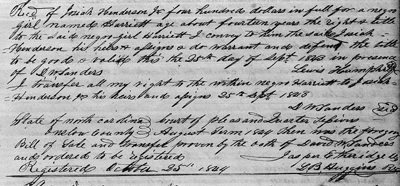 Recd of Josiah Henderson Jr four hundred dollars in full for a negro
girl named Harriett age about fourteen years the right & title
to the said negro girl Harriett I convey to him the said Josiah
Henderson his heirs & assigns & do warrant and defend the title
to be good & valid this the 25th day of Sept 1823 in presence
of D W Sanders Lewis Humphrey
I transfer all my right to the within negro Harriett to Josiah
Henderson & his heirs and assigns 25th Sept 1823
D W Sanders Seal
State of North Carolina Court of pleas and Quarter Sessions
Onslow County August Term 1824 then was the foregoing
Bill of Sale and transfer proven by the oath of David W Sanders
and ordered to be registered
Jasper Etheridge
Registered October 25th 1824 Huggins